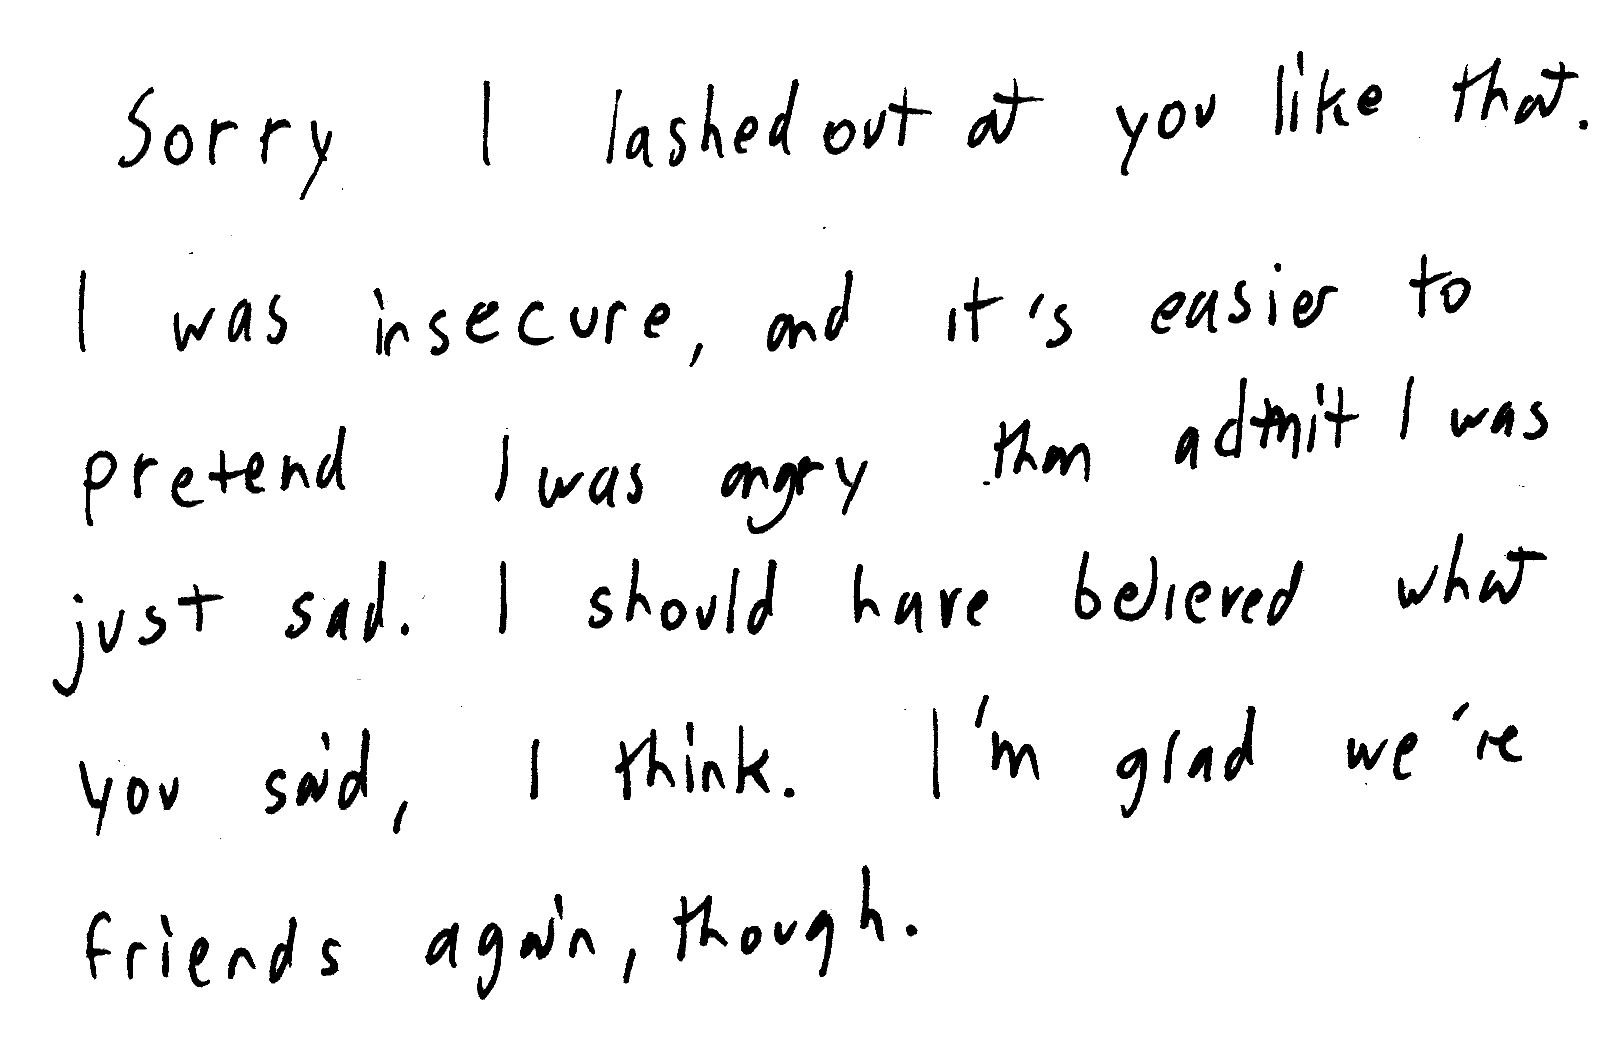 Sorry I lashed out at you like that.
I was insecure, and it's easier to
pretend I was angry than admit I was
just sad. I should have believed what
you said, I think. I'm glad we're
friends again, though.